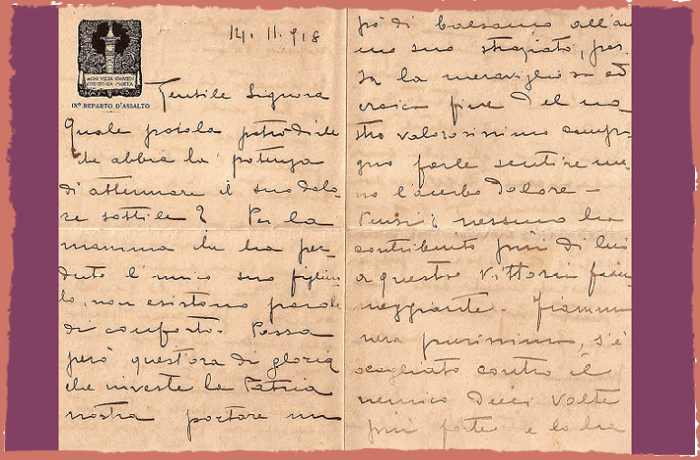 14. 11. 918
IXº REPARTO D'ASSALTO
Gentile Signora
Quale parola potrò dirle
che abbia la potenza
di attenuare il suo dolo-
re sottile? Per la
mamma che ha per-
duto l'unico suo figlio-
lo, non esistono parole
di conforto. Possa
però quest'ora di gloria
che investe la Patria
nostra portare un
pò di balsamo all'ani
mo suo straziato, pos
sa la meravigliosa ed
eroica fine del no
stro valorosissimo compa
gno farle sentire me
no l'acerbo dolore -
Pensi: nessuno ha
contribuito più di lui
a questa vittoria fiam
meggiante. Fiamma
nera purissima, s'è
scagliato contro il
nemico dieci volte
più forte e lo ha